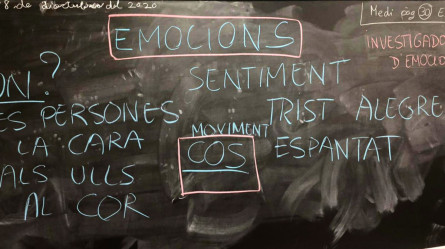 del 2020
EMOCIONS
Medi pag 30 E
INVESTIGADO
D'EMOCIO
ON?
SENTIMENT
ES PERSONES
TRIST ALEGRE
LA CARA
MOVIMENT
COS
ESPANTAT
ALS ULLS
AL COR